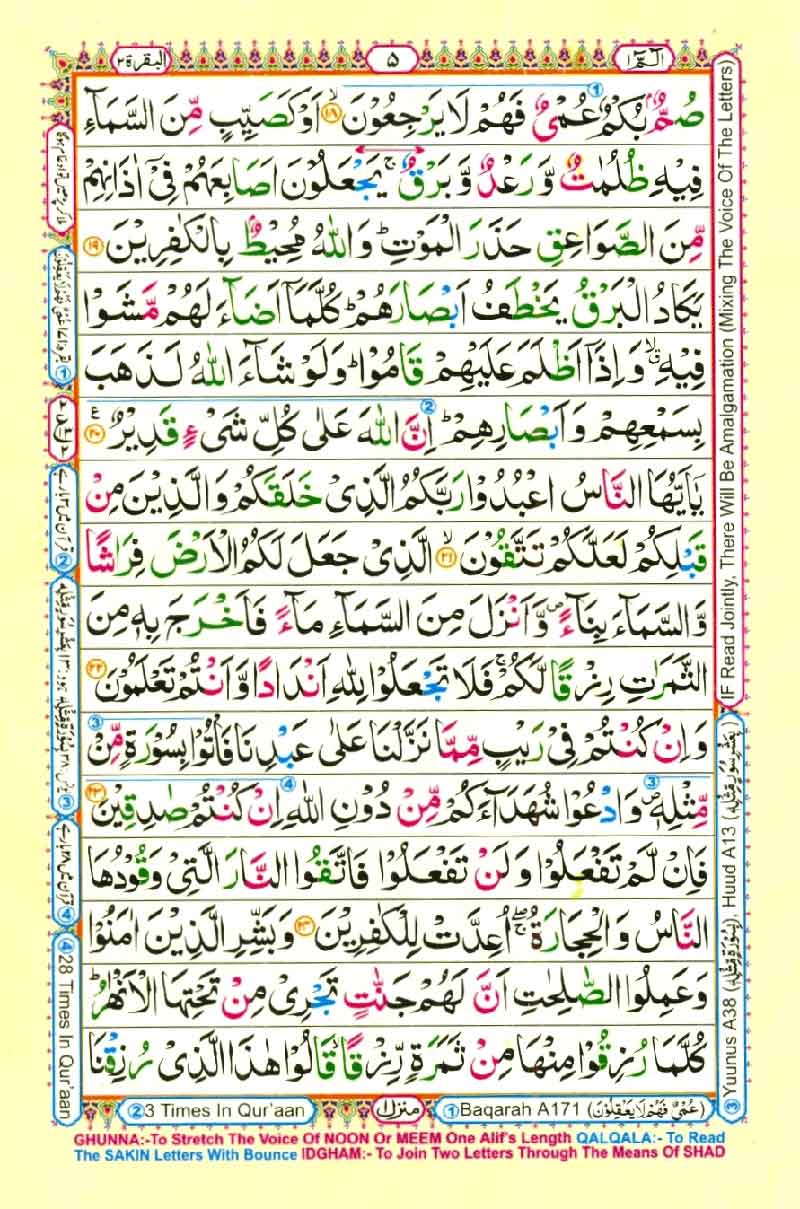 الٓمّٓ ۱
۵
البقرة ۲
صُمٌّۢ بُكْمٌ عُمْیٌ فَهُمْ لَا یَرْجِعُوْنَۙ ۱۸ اَوْ كَصَیِّبٍ مِّنَ السَّمَآءِ
فِیْهِ ظُلُمٰتٌ وَّ رَعْدٌ وَّ بَرْقٌۚ یَجْعَلُوْنَ اَصَابِعَهُمْ فِیْۤ اٰذَانِهِمْ
مِّنَ الصَّوَاعِقِ حَذَرَ الْمَوْتِؕ وَ اللّٰهُ مُحِیْطٌۢ بِالْكٰفِرِیْنَ ۱۹
یَكَادُ الْبَرْقُ یَخْطَفُ اَبْصَارَهُمْؕ كُلَّمَاۤ اَضَآءَ لَهُمْ مَّشَوْا
فِیْهِۙۗ وَ اِذَاۤ اَظْلَمَ عَلَیْهِمْ قَامُوْاؕ وَ لَوْ شَآءَ اللّٰهُ لَذَهَبَ
بِسَمْعِهِمْ وَ اَبْصَارِهِمْؕ اِنَّ اللّٰهَ عَلٰى كُلِّ شَیْءٍ قَدِیْرٌ ۲۰
یٰۤاَیُّهَا النَّاسُ اعْبُدُوْا رَبَّكُمُ الَّذِیْ خَلَقَكُمْ وَ الَّذِیْنَ مِنْ
قَبْلِكُمْ لَعَلَّكُمْ تَتَّقُوْنَۙ ۲۱ الَّذِیْ جَعَلَ لَكُمُ الْاَرْضَ فِرَاشًا
وَّ السَّمَآءَ بِنَآءً۪ وَّ اَنْزَلَ مِنَ السَّمَآءِ مَآءً فَاَخْرَجَ بِهٖ مِنَ
الثَّمَرٰتِ رِزْقًا لَّكُمْۚ فَلَا تَجْعَلُوْا لِلّٰهِ اَنْدَادًا وَّ اَنْتُمْ تَعْلَمُوْنَ ۲۲
وَ اِنْ كُنْتُمْ فِیْ رَیْبٍ مِّمَّا نَزَّلْنَا عَلٰى عَبْدِنَا فَاْتُوْا بِسُوْرَةٍ مِّنْ
مِّثْلِهٖ۪ وَ ادْعُوْا شُهَدَآءَكُمْ مِّنْ دُوْنِ اللّٰهِ اِنْ كُنْتُمْ صٰدِقِیْنَ ۲۳
فَاِنْ لَّمْ تَفْعَلُوْا وَ لَنْ تَفْعَلُوْا فَاتَّقُوا النَّارَ الَّتِیْ وَ قُوْدُهَا
النَّاسُ وَ الْحِجَارَةُ ۖۚ اُعِدَّتْ لِلْكٰفِرِیْنَ ۲۴ وَ بَشِّرِ الَّذِیْنَ اٰمَنُوْا
وَ عَمِلُوا الصّٰلِحٰتِ اَنَّ لَهُمْ جَنّٰتٍ تَجْرِیْ مِنْ تَحْتِهَا الْاَنْهٰرُؕ
كُلَّمَا رُزِقُوْا مِنْهَا مِنْ ثَمَرَةٍ رِّزْقًاۙ قَالُوْا هٰذَا الَّذِیْ رُزِقْنَا
IF Read Jointly, There Will Be Amalgamation (Mixing The Voice Of The Letters)
③ Yuunus A38 (بِسُوْرَةٍ مِّثْلِهٖ), Huud A13 (بِعَشْرِ سُوَرٍ مِّثْلِهٖ)
④ 28 Times In Qur'aan
② 3 Times In Qur'aan
منزل ۱
① Baqarah A171 (عُمْیٌ فَهُمْ لَا یَعْقِلُوْنَ)
GHUNNA:-To Stretch The Voice Of NOON Or MEEM One Alif's Length QALQALA:- To Read
The SAKIN Letters With Bounce IDGHAM:- To Join Two Letters Through The Means Of SHAD